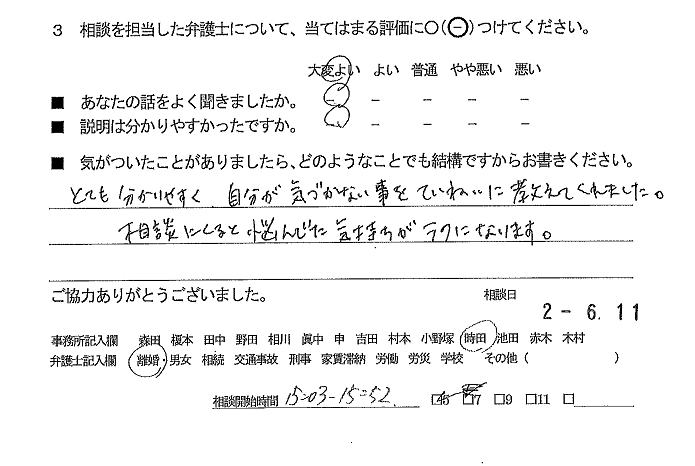 3 相談を担当した弁護士について、当てはまる評価に○(⊖)つけてください。
大変よい よい 普通 やや悪い 悪い
■ あなたの話をよく聞きましたか。 － － － － －
■ 説明は分かりやすかったですか。 － － － － －
■ 気がついたことがありましたら、どのようなことでも結構ですからお書きください。
とても分かりやすく 自分が気づかない事をていねいに教えてくれました。
相談にくると悩んでた気持ちがラクになります。
ご協力ありがとうございました。 相談日 2-6.11
事務所記入欄 森田 榎本 田中 野田 相川 眞中 申 吉田 村本 小野塚 時田 池田 赤木 木村
弁護士記入欄 離婚・男女 相続 交通事故 刑事 家賃滞納 労働 労災 学校 その他( )
相談開始時間 15:03-15:52 □45 □7 □9 □11 □